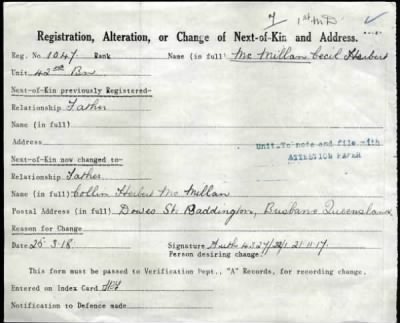 7 1st M D
Registration, Alteration, or Change of Next-of-Kin and Address.
Reg. No. 1047 Rank Name (in full) Mc Millan Cecil Herbert
Unit 42nd Bn
Next-of-Kin previously Registered-
Relationship Father
Name (in full)
Address
Unit To note and file with
ATTESTION PAPER
Next-of-Kin now changed to-
Relationship Father
Name (in full) Collin Herbert Mc Millan
Postal Address (in full) Dowse St. Paddington, Brisbane Queensland
Reason for Change
Date 25 3-18. Signature Auth 4527/ 21-11-17
Person desiring change.
This form must be passed to Verification Dept., "A" Records, for recording change.
Entered on Index Card
Notification to Defence made